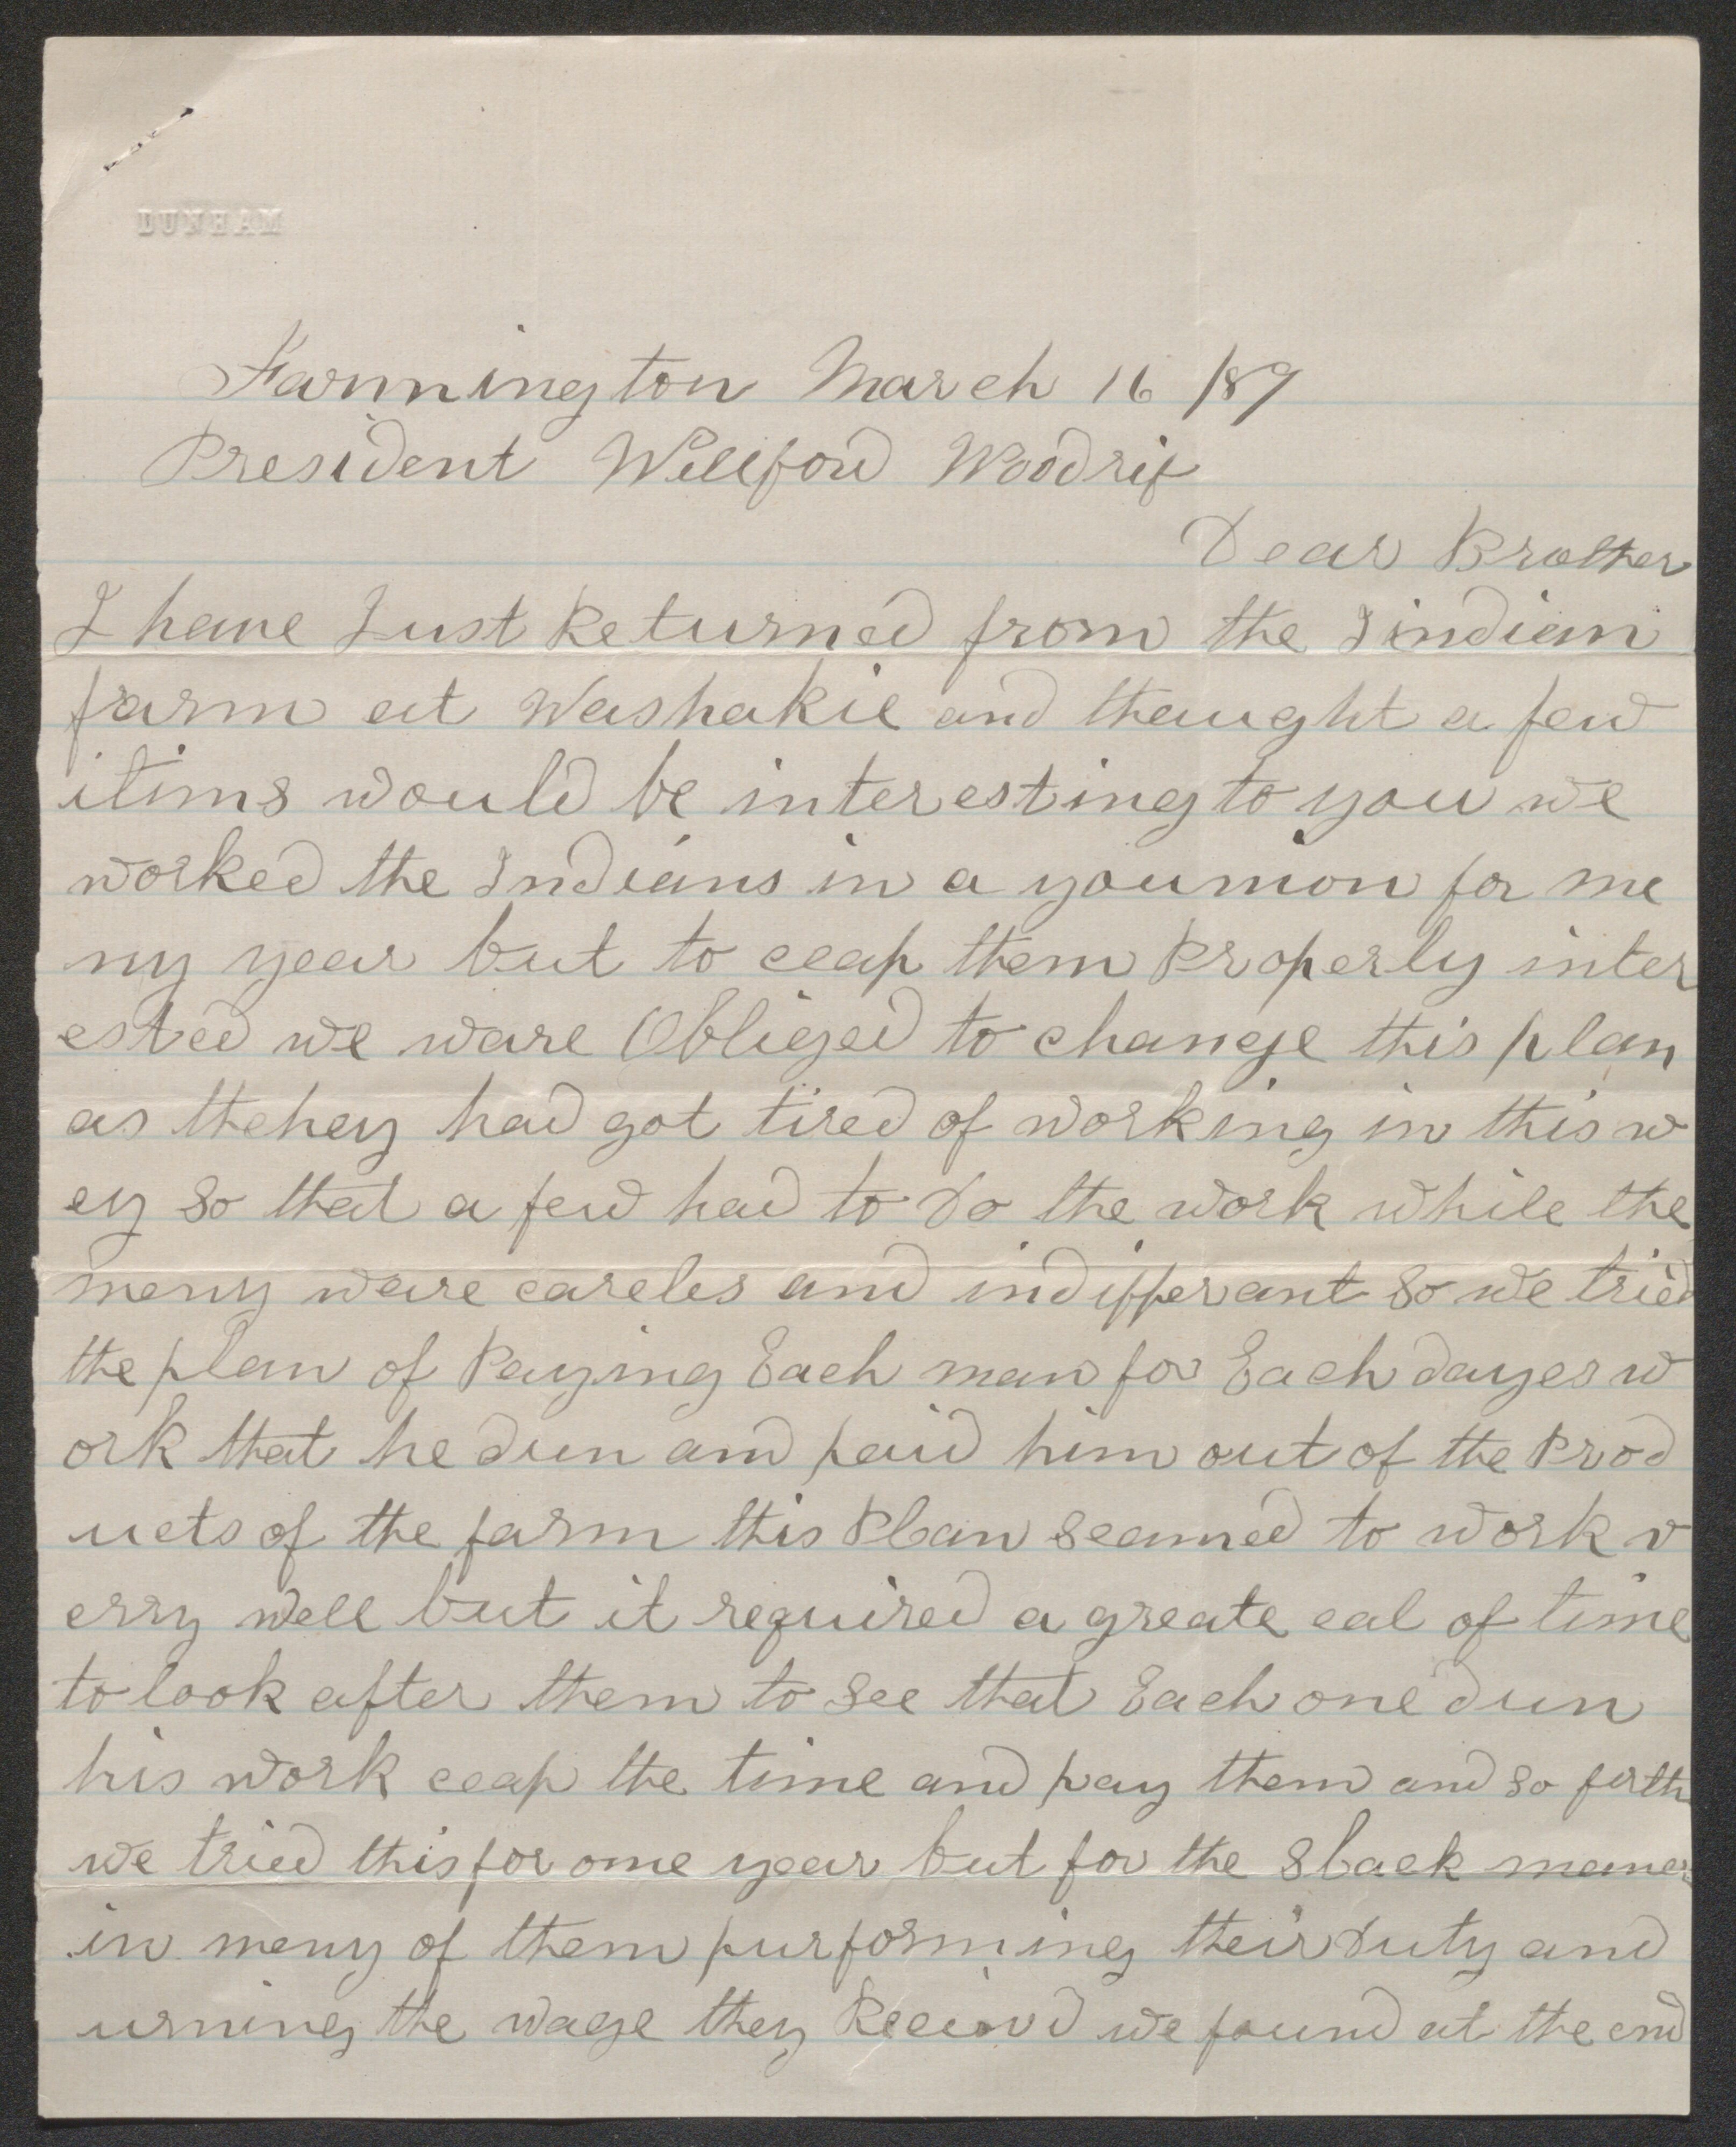 DUNHAM
Farmington March 16 /89
President Willford Woodrif
Dear Brother
I have Just Returned from the Iindian
farm at Washakie and thaught a few
itims would be interesting to you we
worked the Indians in a younion for me
ny year but to ceap them Properly inter
ested we ware Obliged to change this plan
as thehey had got tired of working in this w
ey so that a few had to Do the work while the
meny ware careles and indifferant so we tried
the plan of Paying Each man for Each dayes w
ork that he dun and paid him out of the Prod
ucts of the farm this Plan seamed to work v
erry well but it required a greate eal of time
to look after them to see that Each one dun
his work ceap the time and pay them and so forth
we tried this for one year but for the slack maner
in meny of them purforming their Duty and
urning the wage they Reeived we found at the end